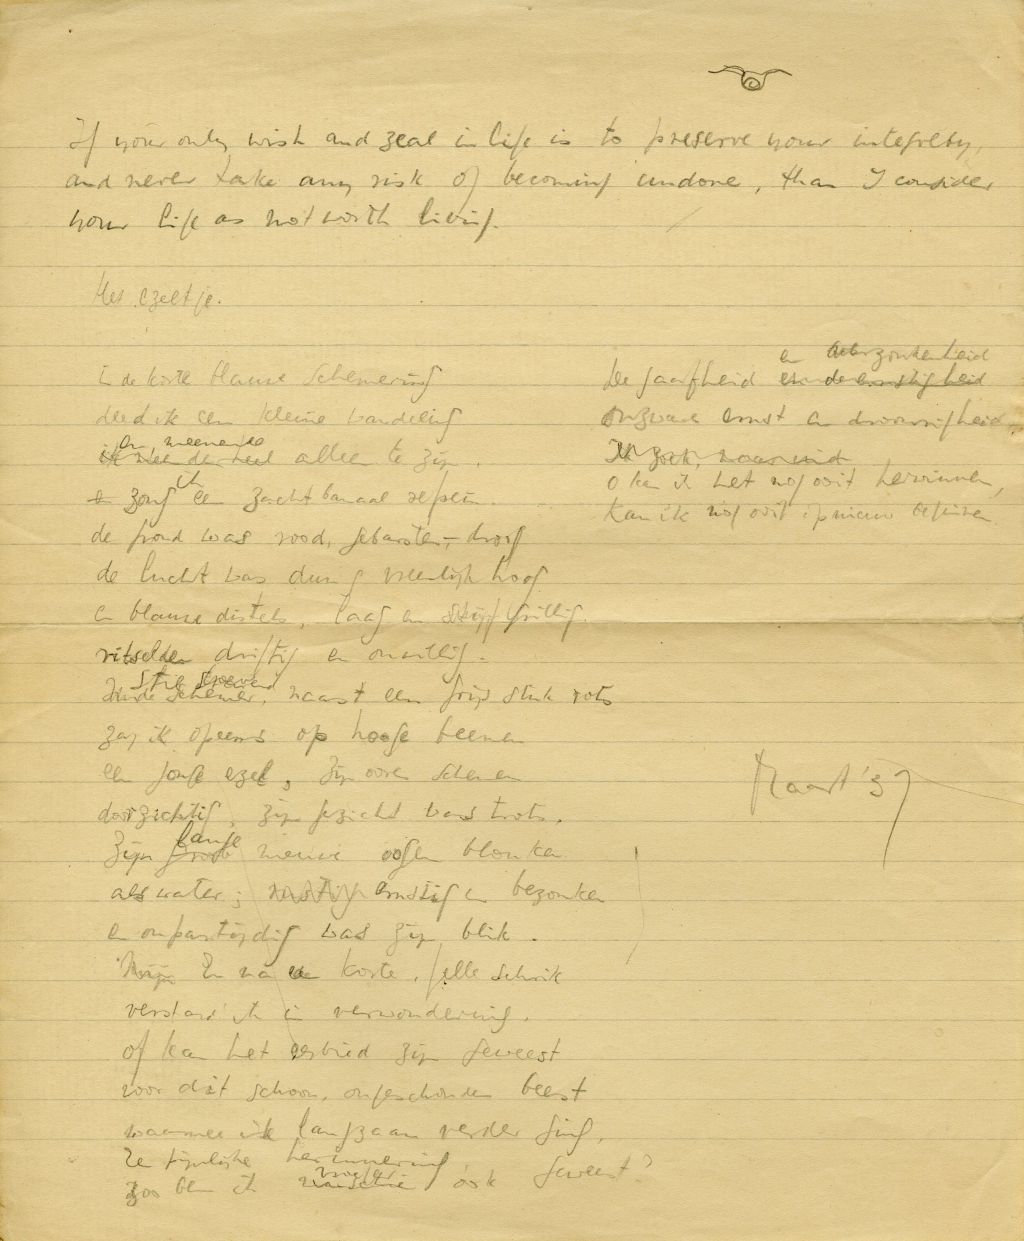 If your only wish and zeal in life is to preserve your integrety,
and never take any risk of becoming undone, than I consider
your life as not worth living.
Het ezeltje.
in de korte blauwe schemering
deed ik een kleine wandeling
en meenende
alleen te zijn.
zong ik een zacht banaal refrein.
de grond was rood, gebarsten, droog
de lucht was dun en vreeselijk hoog
en blauwe distels, laag en grillig.
ritselden driftig en onwillig.
schemer, naast een grijs stuk rots
zag ik opeens op hooge beenen
een jonge ezel, zijn ooren schenen
doorzichtig, zijn gezicht was trots.
lange
Zijn nieuwe oogen blonken
als water; ernstig en bezonken
en onpartijdig was zijn blik.
En na een korte, felle schrik
verstard ik in verwondering.
of kan het eerbied zijn geweest
voor dat schoon, ongeschonden beest
waarmee ik langzaam verder ging,
de pijnlijke herinnering
vroeger
zoo ben ik óók geweest?
en verzonkenheid
De gaafheid
Onzware ernst en droomrigheid
Ik zoek,
o kan ik het nog ooit herwinnen,
kan ik nog ooit opnieuw beginnen.
Maart '37